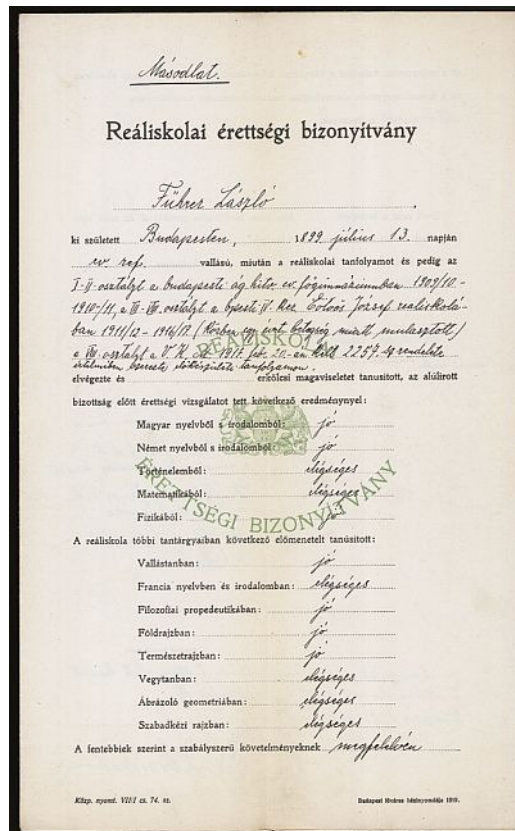 Másodlat.
Reáliskolai érettségi bizonyítvány
Führer László
ki született Budapesten, 1899. július 13. napján
ev. ref. vallású, miután a reáliskolai tanfolyamot és pedig az
I-II. osztályt a budapesti ág. hitv. ev. főgimnáziumban 1909/10.-
1910/11., a III-VII. osztályt a bpesti V. ker. Eötvös József reáliskolá-
ban 1911/12 - 1916/17. (közben egy évet betegség miatt mulasztott)
a VIII. osztályt a V. K. M. 1917. febr. 20.-án kelt 2257. rendelete
értelmében szervezett előkészületi tanfolyamon.
elvégezte és erkölcsi magaviseletet tanusított, az alúlírott
bizottság előtt érettségi vizsgálatot tett következő eredménynyel:
Magyar nyelvből s irodalomból: jó
Német nyelvből s irodalomból: jó
Történelemből: elégséges
Matematikából: elégséges
Fizikából: jó
REÁLISKOLAI
ÉRETTSÉGI BIZONYÍTVÁNY
A reáliskola többi tantárgyaiban következő előmenetelt tanúsított:
Vallástanban: jó
Francia nyelvben és irodalomban: elégséges
Filozofiai propedeutikában: jó
Földrajzban: jó
Természetrajzban: jó
Vegytanban: elégséges
Ábrázoló geometriában: elégséges
Szabadkézi rajzban: elégséges
A fentebbiek szerint a szabályszerű követelményeknek megfelelvén
Közp. nyomt. VIII/I cs. 74. sz.
Budapest főváros házinyomdája 1919.